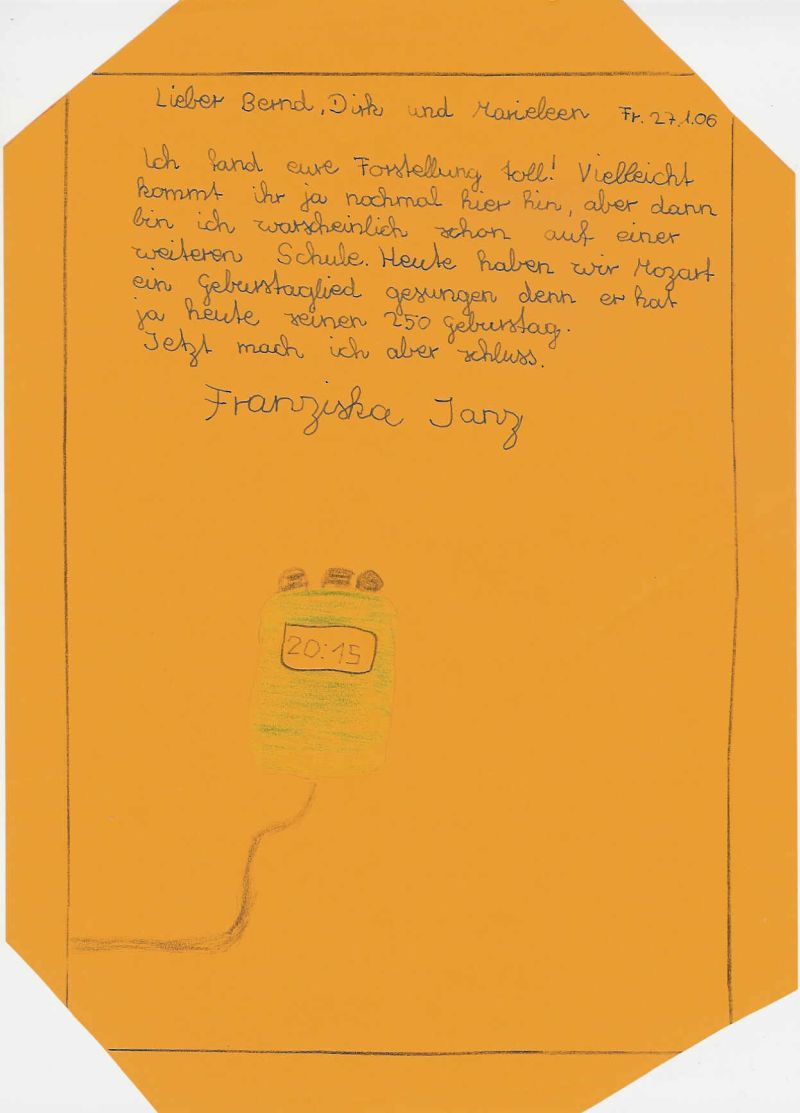 Lieber Bernd, Dirk und Marieleen Fr. 27.1.06
Ich fand eure Forstellung toll! Vielleicht
kommt ihr ja nochmal hier hin, aber dann
bin ich warscheinlich schon auf einer
weiteren Schule. Heute haben wir Mozart
ein Geburstaglied gesungen denn er hat
ja heute seinen 250 Geburstag.
Jetzt mach ich aber schluss.
Franziska Janz
20:15